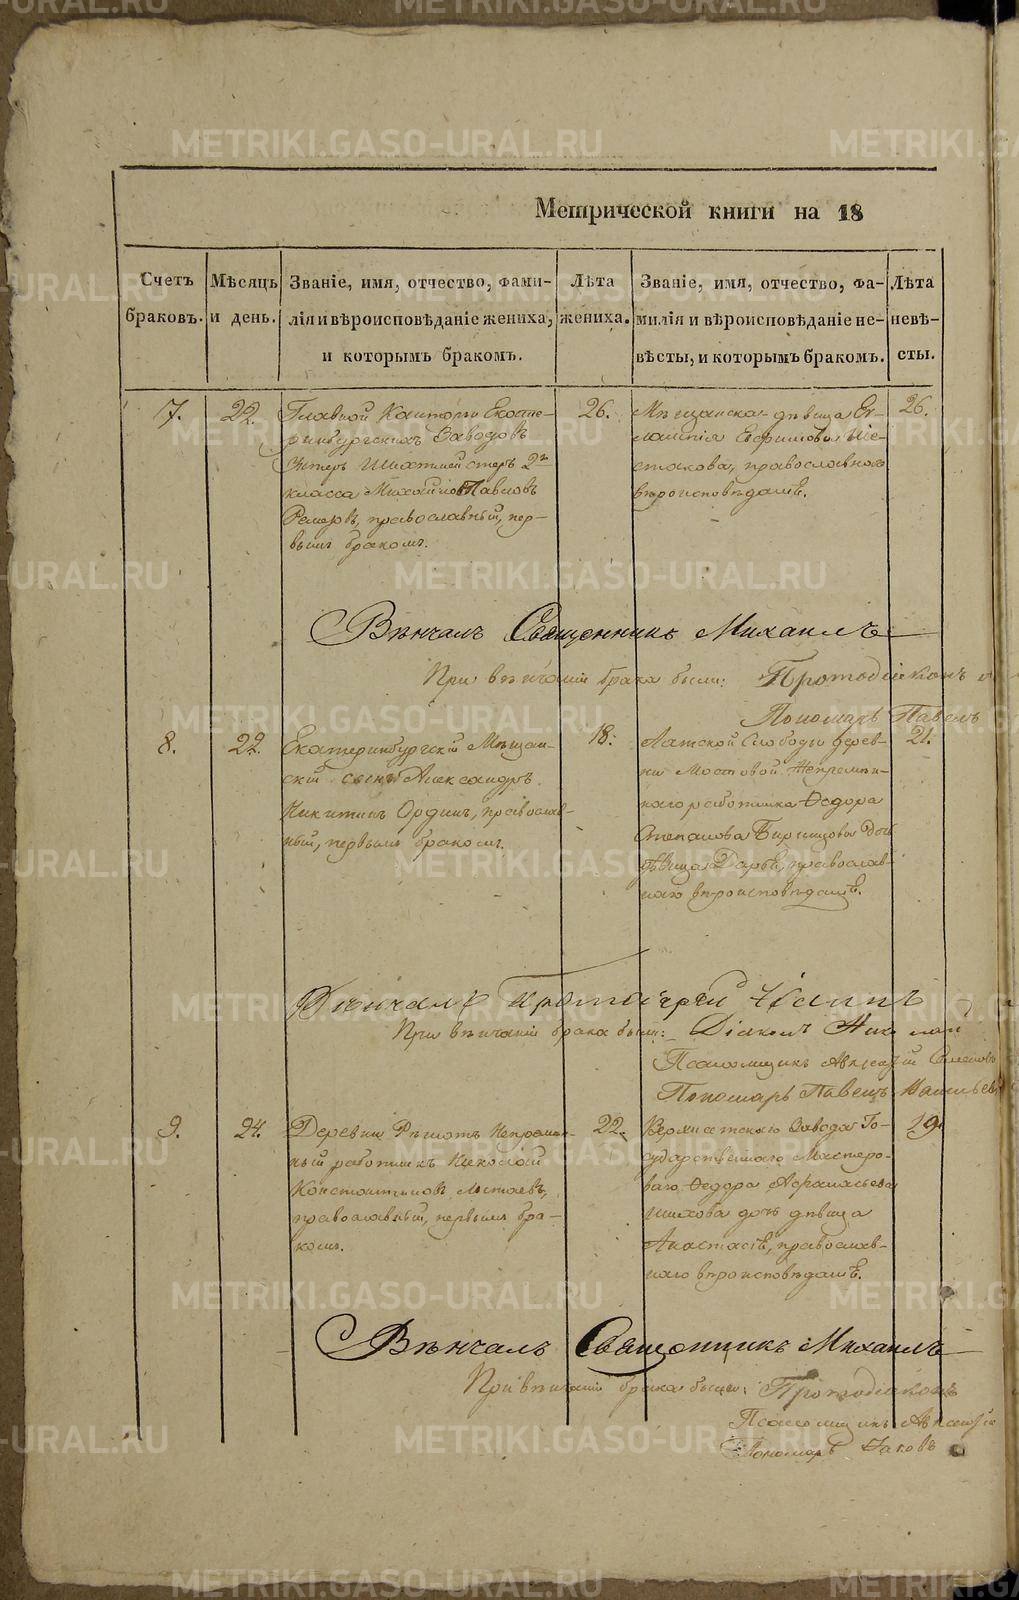 Метрической книги на 18
Счетъ браковъ.
Мѣсяцъ и день.
Званіе, имя, отчество, фами-
лія и вѣроисповѣданіе жениха,
и которымъ бракомъ.
Лѣта жениха.
Званіе, имя, отчество, фа-
милія и вѣроисповѣданіе не-
вѣсты, и которымъ бракомъ.
Лѣта невѣ-
сты.
7.
22.
Главной Конторы Екате-
ринбургскихъ Заводовъ
Шихтмейстеръ 2го
класса Михаилъ Павловъ
православный, пер-
вымъ бракомъ.
26.
Мѣщанская дѣвица Ев-
лампія Ефимова Ше-
стакова, православнаго
вѣроисповѣданіѣ.
26.
Вѣнчалъ Священникъ Михаилъ
При вѣнчаніи брака были: Протодіаконъ
Пономарь Павелъ
8.
22.
Екатеринбургскій Мѣщан-
скій сынъ Александръ
Никитинъ Ординъ, православ-
ный, первымъ бракомъ.
18.
Слободы дерев-
ни Мостовой Непремѣн-
наго работника Ѳедора
Степанова дочь
дѣвица Дарьѣ, православ-
наго вѣроисповѣданіѣ.
21.
Вѣнчалъ Протоіерей Іаннъ
При вѣнчаніи брака были: Діаконъ Николай
Псаломщикъ Алексѣй
Пономарь Павелъ Васильевъ
9.
24.
Деревни Рѣшотъ Непремѣн-
ный работникъ Николай
Константиновъ
православный, первымъ бра-
комъ.
22.
Верхисетскаго Завода Го-
сударственнаго Мастеро-
ваго Ѳедора
дочь дѣвица
Анастасіѣ, православ-
наго вѣроисповѣданіѣ.
19.
Вѣнчалъ Священникъ Михаилъ
При вѣнчаніи брака были: Протодіаконъ
Псаломщикъ Алексѣй
Пономарь Іаковъ
METRIKI.GASO-URAL.RU